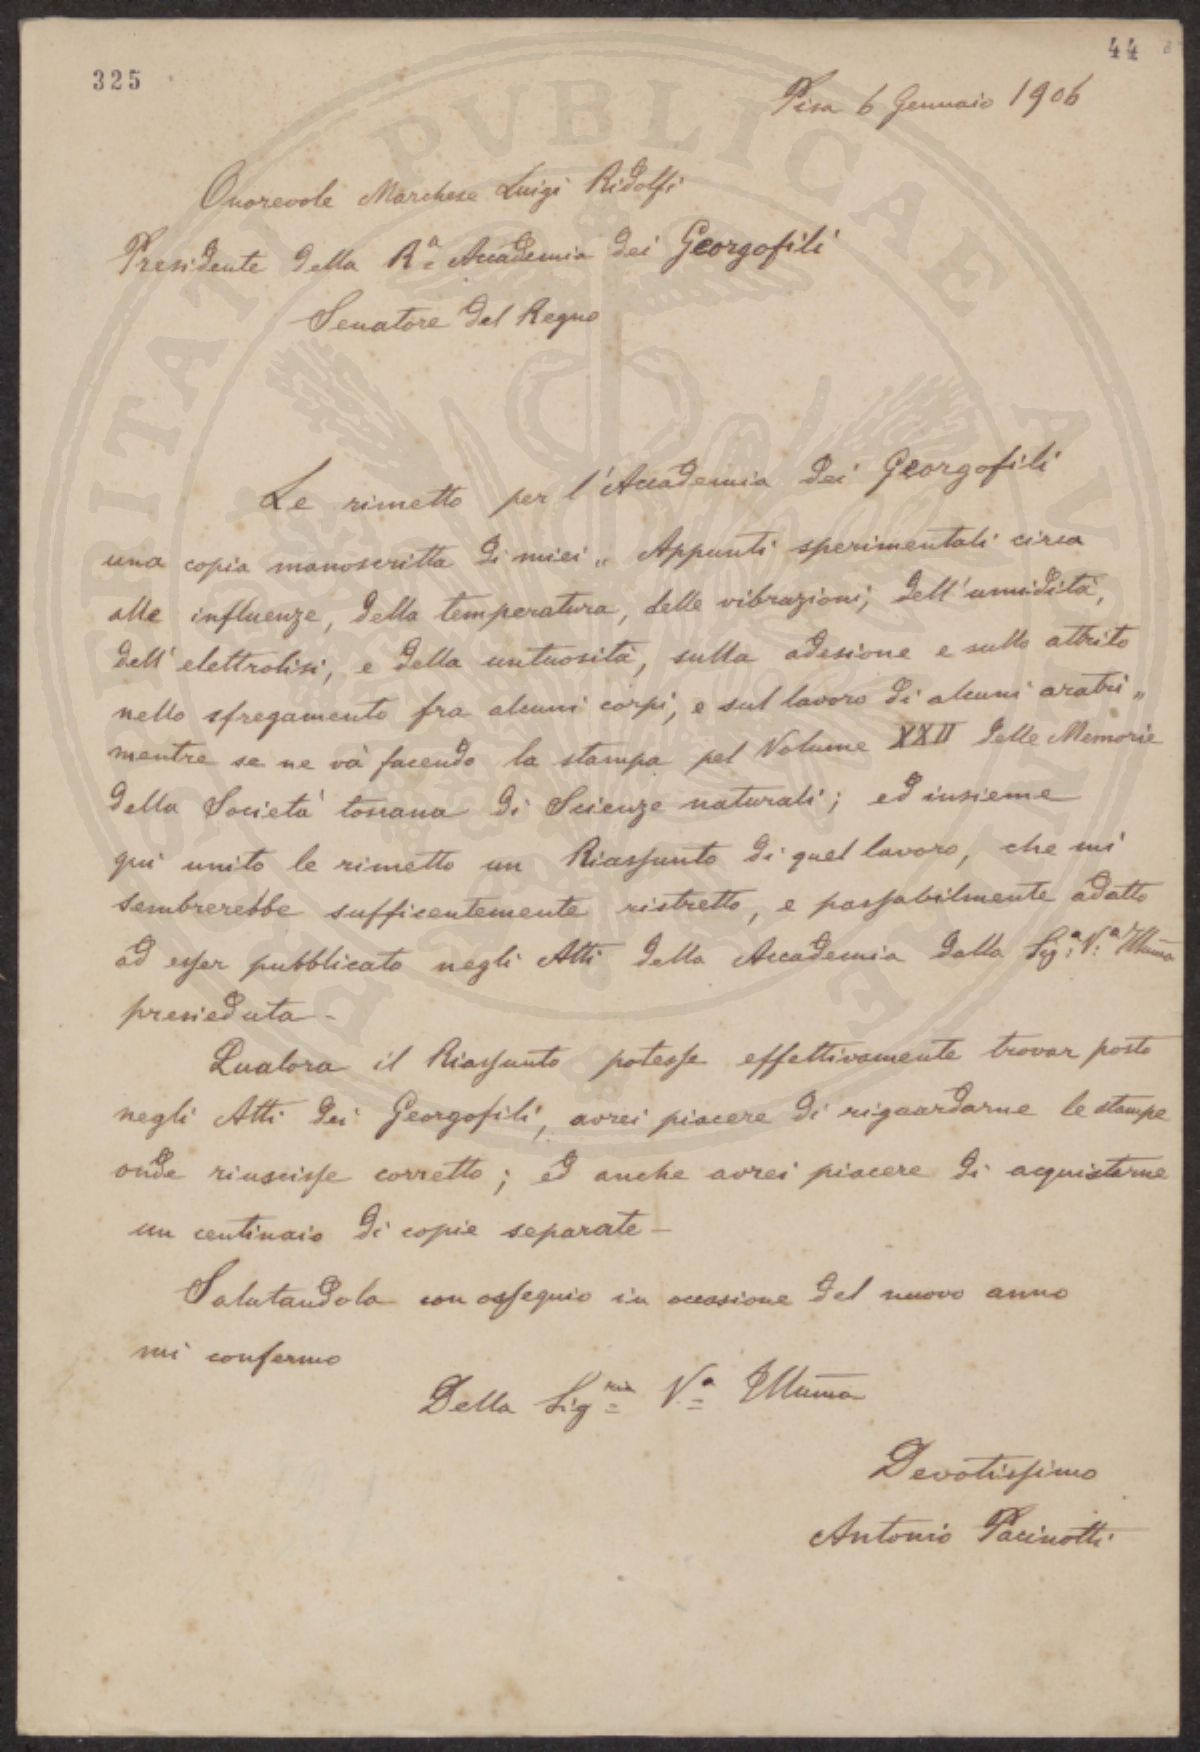 325
44
Pisa 6 Gennaio 1906
Onorevole Marchese Luigi Ridolfi
Presidente della R.a Accademia dei Georgofili
Senatore del Regno
Le rimetto per l'Accademia dei Georgofili
una copia manoscritta di miei „ Appunti sperimentali circa
alle influenze, della temperatura, delle vibrazioni, dell'umidità,
dell'elettrolisi, e della untuosità, sulla adesione e sullo attrito
nello sfregamento fra alcuni corpi, e sul lavoro di alcuni aratri „
mentre se ne và facendo la stampa pel Volume XXII delle Memorie
della Società toscana di Scienze naturali; ed insieme
quì unito le rimetto un Riassunto di quel lavoro, che mi
sembrerebbe sufficentemente ristretto, e passabilmente adatto
ad esser pubblicato negli Atti della Accademia dalla Sig.a V.a Illuma
presieduta -
Qualora il Riassunto potesse effettivamente trovar posto
negli Atti dei Georgofili, avrei piacere di riguardarne le stampe
onde riuscisse corretto; ed anche avrei piacere di acquistarne
un centinaio di copie separate -
Salutandola con ossequio in occasione del nuovo anno
mi confermo
Della Sigria Va Illuma
Devotissimo
Antonio Pacinotti
PROSPERITATI PVBLICAE AVGENDAE